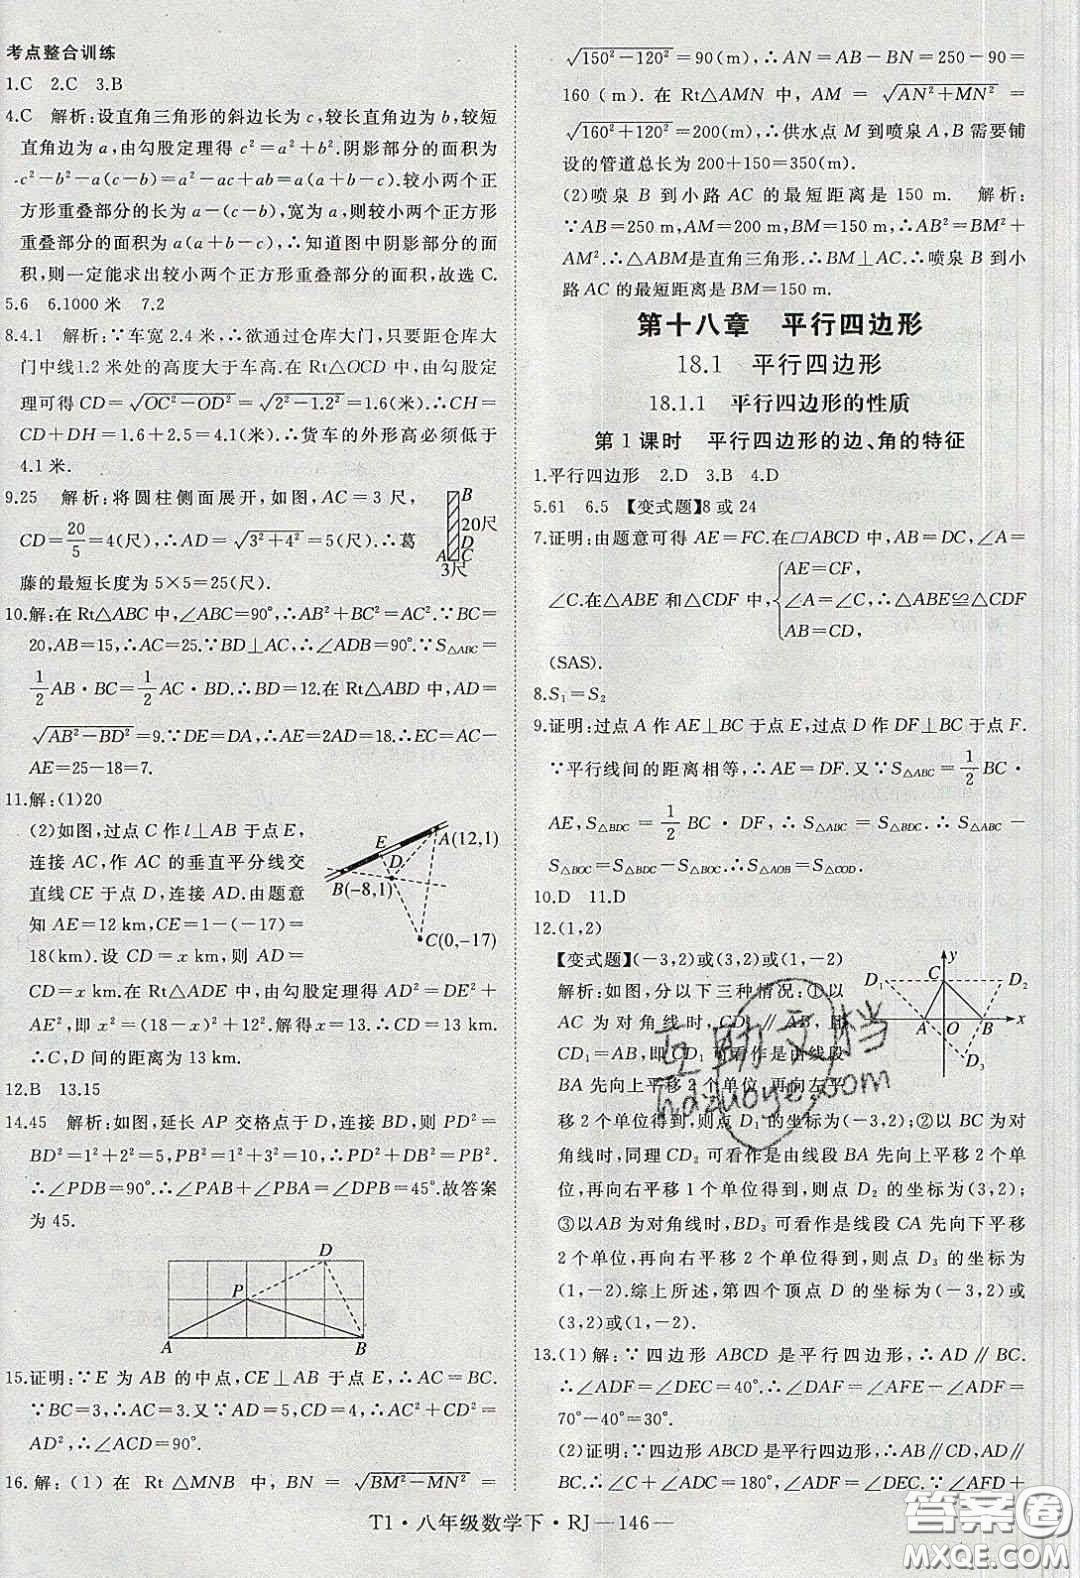 考点整合训练
1.C　2.C　3.B
4.C　解析:设直角三角形的斜边长为c,较长直角边为b,较短
直角边为a,由勾股定理得c²=a²+b².阴影部分的面积为
c²-b²-a(c-b)=a²-ac+ab=a(a+b-c).较小两个正
方形重叠部分的长为a-(c-b),宽为a,则较小两个正方形
重叠部分的面积为a(a+b-c),∴知道图中阴影部分的面
积,则一定能求出较小两个正方形重叠部分的面积,故选C.
5.6　6.1000米　7.2
8.4.1　解析:∵车宽2.4米,∴欲通过仓库大门,只要距仓库大
门中线1.2米处的高度大于车高.在Rt△OCD中,由勾股定
理可得CD=√(OC²-OD²)=√(2²-1.2²)=1.6(米),∴CH=
CD+DH=1.6+2.5=4.1(米),∴货车的外形高必须低于
4.1米.
9.25　解析:将圆柱侧面展开,如图,AC=3尺,
CD=20/5=4(尺),∴AD=√(3²+4²)=5(尺).∴葛
藤的最短长度为5×5=25(尺).
B
20尺
D
A C
3尺
10.解:在Rt△ABC中,∠ABC=90°,∴AB²+BC²=AC².∵BC=
20,AB=15,∴AC=25.∵BD⊥AC,∴∠ADB=90°.∵S△ABC=
1/2 AB·BC=1/2 AC·BD.∴BD=12.在Rt△ABD中,AD=
√(AB²-BD²)=9.∵DE=DA,∴AE=2AD=18.∴EC=AC-
AE=25-18=7.
11.解:(1)20
(2)如图,过点C作l⊥AB于点E,
连接AC,作AC的垂直平分线交
直线CE于点D,连接AD.由题意
知AE=12 km,CE=1-(-17)=
18(km).设CD=x km,则AD=
CD=x km.在Rt△ADE中,由勾股定理得AD²=DE²+
AE²,即x²=(18-x)²+12².解得x=13.∴CD=13 km.
∴C,D间的距离为13 km.
E
A(12,1)
D
B(-8,1)
C(0,-17)
12.B　13.15
14.45　解析:如图,延长AP交格点于D,连接BD,则PD²=
BD²=1²+2²=5,PB²=1²+3²=10,∴PD²+DB²=PB².
∴∠PDB=90°.∴∠PAB+∠PBA=∠DPB=45°.故答案
为45.
D
P
A
B
15.证明:∵E为AB的中点,CE⊥AB于点E,∴AC=BC.
∵BC=3,∴AC=3.又∵AD=3√2,CD=3,∴AC²+CD²=
AD²,∴∠ACD=90°.
16.解:(1)在Rt△MNB中,BN=√(BM²-MN²)=
√(150²-120²)=90(m),∴AN=AB-BN=250-90=
160(m).在Rt△AMN中,AM=√(AN²+MN²)=
√(160²+120²)=200(m),∴供水点M到喷泉A,B需要铺
设的管道总长为200+150=350(m).
(2)喷泉B到小路AC的最短距离是150 m.　解析:
∵AB=250 m,AM=200 m,BM=150 m,∴AB²=BM²+
AM².∴△ABM是直角三角形.∴BM⊥AC.∴喷泉B到小
路AC的最短距离是BM=150 m.
第十八章　平行四边形
18.1　平行四边形
18.1.1　平行四边形的性质
第1课时　平行四边形的边、角的特征
1.平行四边形　2.D　3.B　4.D
5.61　6.5　【变式题】8或24
7.证明:由题意可得AE=FC.在□ABCD中,AB=CD,∠A=
∠C.在△ABE和△CDF中,{AE=CF, ∠A=∠C, AB=CD, ∴△ABE≌△CDF
(SAS).
8.S₁=S₂
9.证明:过点A作AE⊥BC于点E,过点D作DF⊥BC于点F.
∵平行线间的距离相等,∴AE=DF.又∵S△ABC=1/2 BC·
AE,S△BDC=1/2 BC·DF,∴S△ABC=S△BDC.∴S△ABC-
S△BOC=S△BDC-S△BOC.∴S△AOB=S△COD.
10.D　11.D
12.(1,2)
【变式题】(-3,2)或(3,2)或(1,-2)
解析:如图,分以下三种情况:①以
AC为对角线时,CD₁∥AB,即
CD₁=BA.CD₁可看作是由线段
BA先向上平移2个单位,再向左平
移2个单位得到,则点D₁的坐标为(-3,2);②以BC为对
角线时,同理CD₂可看作是由线段BA先向上平移2个单
位,再向右平移2个单位得到,则点D₂的坐标为(3,2);
③以AB为对角线时,BD₃可看作是线段CA先向下平移
2个单位,再向右平移2个单位得到,则点D₃的坐标为
(1,-2).综上所述,第四个顶点D的坐标为(-3,2)或
(3,2)或(1,-2).
y
D₁
C
D₂
A O B x
D₃
13.(1)解:∵四边形ABCD是平行四边形,∴AD∥BC.
∴∠ADF=∠DEC=40°.∴∠DAF=∠AFE-∠ADF=
70°-40°=30°.
(2)证明:∵四边形ABCD是平行四边形,∴AB∥CD,AD∥
BC.∴∠B+∠DCE=180°,∠ADF=∠DEC.∵∠AFD+
T1·八年级数学下·RJ—146—
互助文档
hdzuoye.com
答案圈
MXQE.COM